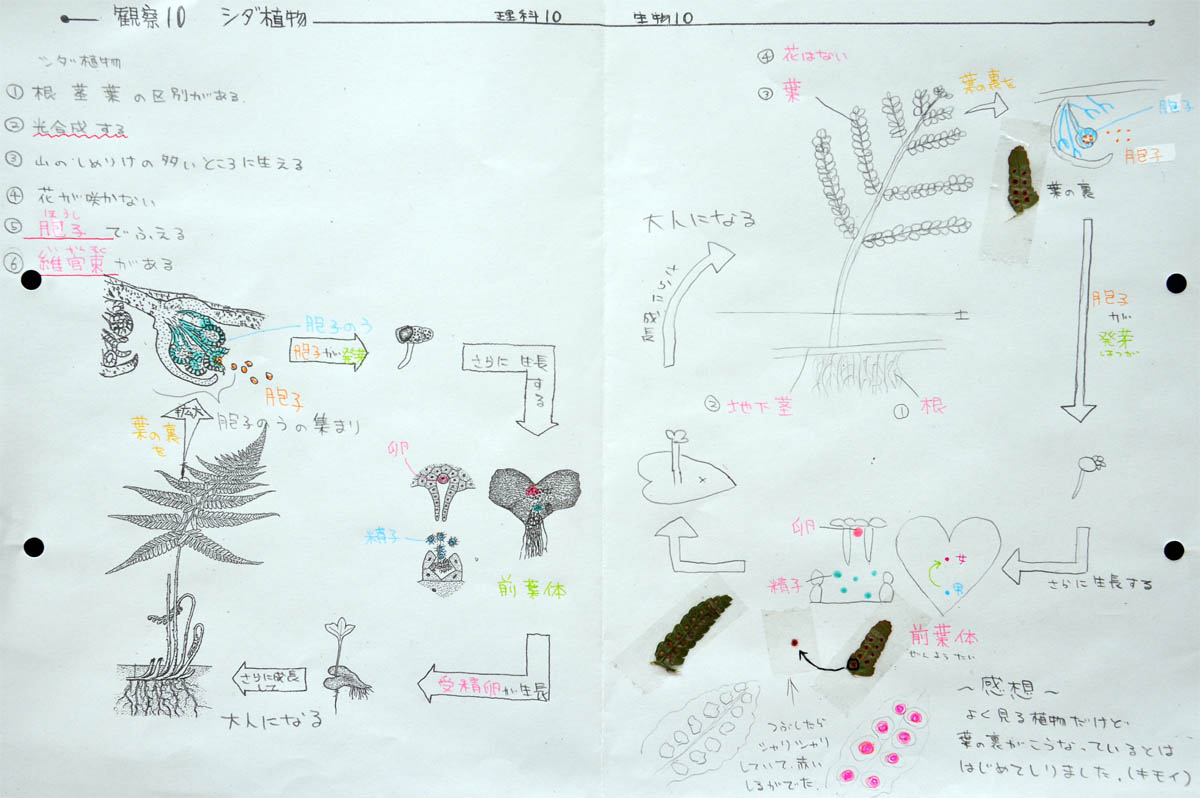 観察10 シダ植物 理科10 生物10
シダ植物
① 根茎葉の区別がある.
② 光合成する
③ 山のしめりけの多いところに生える
④ 花が咲かない
ほうし
⑤ 胞子でふえる
いかんそく
⑥ 維管束がある
胞子のう
胞子が発芽
胞子
拡大
胞子のうの集まり
葉の裏を
さらに生長する
卵
精子
前葉体
受精卵が生長
さらに成長して
大人になる
④ 花はない
③ 葉
葉の裏を
胞子
胞子
葉の裏
大人になる
さらに成長
土
② 地下茎
① 根
胞子が発芽
はつが
さらに生長する
卵
精子
女
男
前葉体
ぜんようたい
つぶしたら
シャリシャリ
していて、赤い
しるがでた。
～感想～
よく見る植物だけど、
葉の裏がこうなっているとは
はじめてしりました。(キモイ)